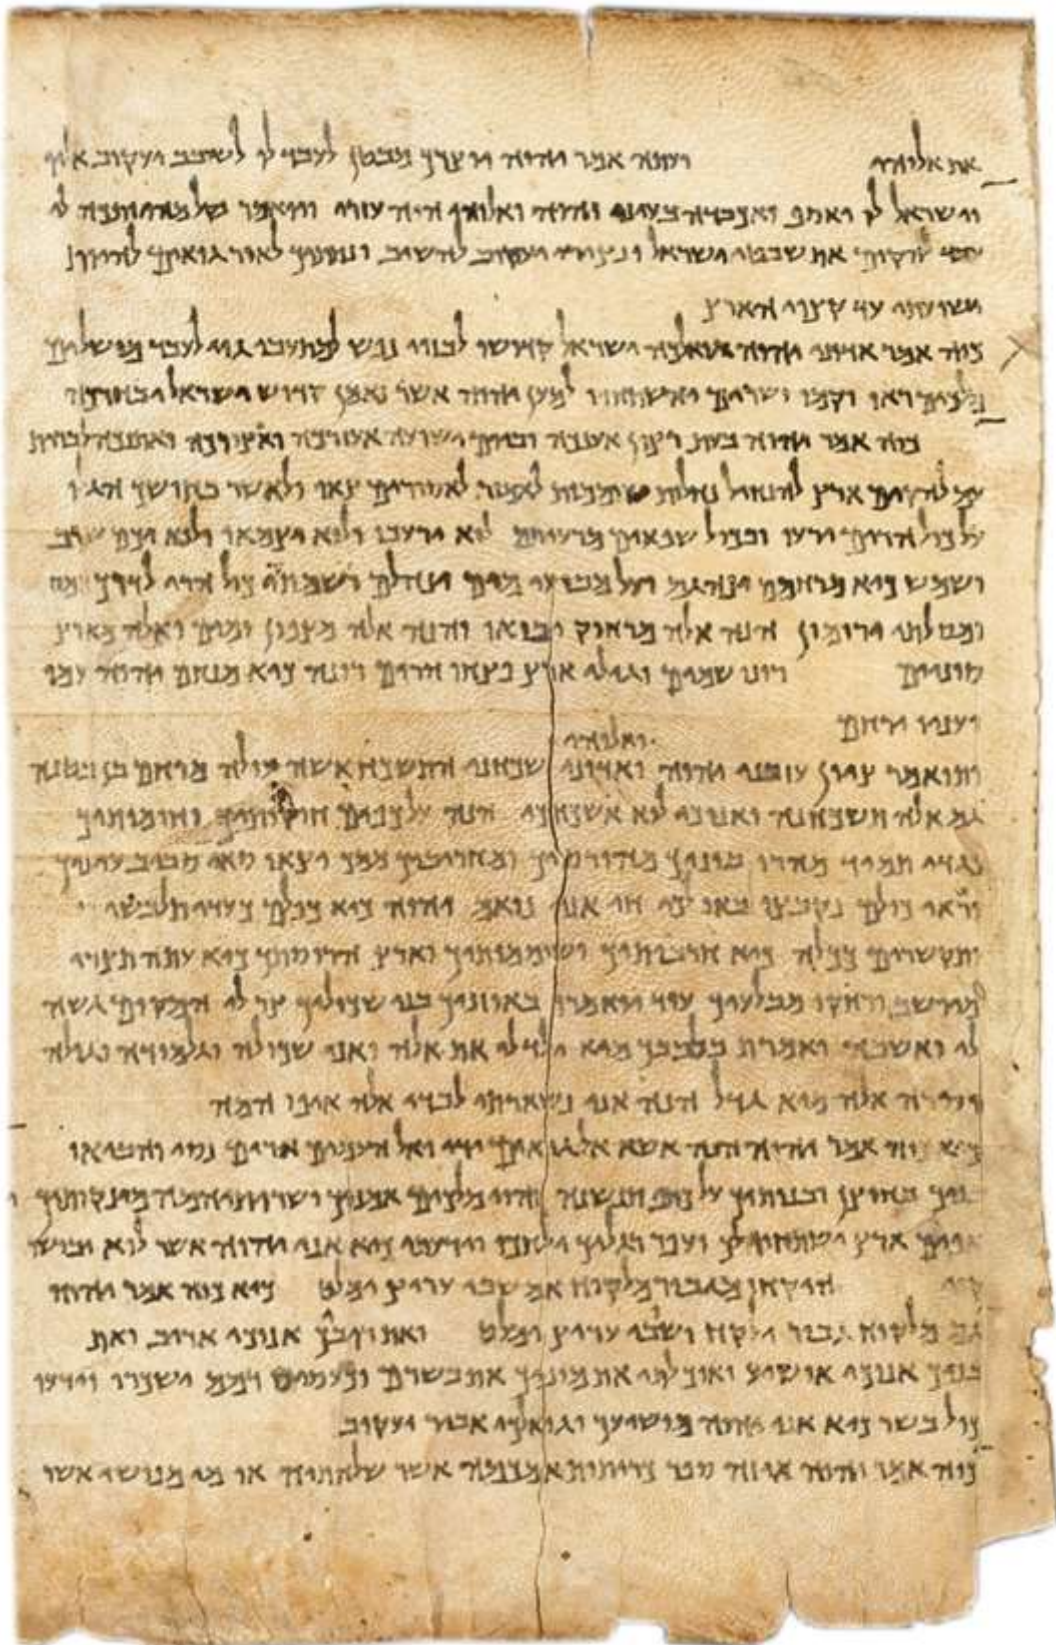 את אלוהי ועתה אמר יהוה יוצרך מבטן לעבד לו לשובב יעקוב אליו
וישראל לו יאסף ואכבדה בעיני יהוה ואלוהי היה עזרי ויואמר מהיותכה לי
עבד להקים את שבטי ישראל ונצירי יעקוב להשיב ונתתיך לאור גואים להיות
ישועתי עד קצוי הארץ
כוה אמר אדוני יהוה גואלכה ישראל קדושו לבזוי נפש למתעבי גוי לעבד מושלים
מלכים ראו וקמו ושרים והשתחוו למען יהוה אשר נאמן קדוש ישראל יבחרכה
כוה אמר יהוה בעת רצון אענכה וביום ישועה אעזרכה ואצורכה ואתנכה לברית
עם להקים ארץ להנחיל נחלות שוממות לאמור לאסורים צאו ולאשר בחושך הגלו
על כול הרים ירעו ובכול שפאים מרעיתם לוא ירעבו ולוא יצמאו ולוא יכם שרב
ושמש כיא מרחמם ינהגם ועל מבועי מים ינהלם ושמתי כול הרי לדרך
ומסלתי ירומון הנה אלה מרחוק יבואו והנה אלה מצפון ומים ואלה מארץ
סונים רונו שמים וגילי ארץ פצחו הרים רונה כיא מנחם יהוה עמו
ועניו ירחם
ואלוהי
ותואמר ציון עזבני יהוה ואדוני שכחני התשכח אשה עולה מרחם בן בטנה
גם אלה תשכחנה ואנוכי לוא אשכחך הנה על כפים חקותיך וחומותיך
נגדי תמיד מהרו בוניך מהורסיך ומחריביך ממך יצאו שאי סביב עיניך
וראי כולם נקבצו באו לך חי אני נואם יהוה כיא כולם כעדי תלבשי
ותקשרים ככלה כיא חרבותיך ושוממותיך וארץ הריסותך כיא עתה תצרי
מיושב ורחקו מבלעיך עוד יאמרו באוזניך בני שכוליך צר לי המקום גשה
לי ואשבה ואמרת בלבבך מיא ילד לי את אלה ואני שכולה וגלמודה וגולה
וסרה אלה מיא גדל הנה אני נשארתי לבדי אלה איפו המה
כיא כוה אמר יהוה הנה אשא אל גואים ידי ואל העמים ארים נסי והביאו
בניך בחוצן ובנותיך על כתף תנשנה והיו מלכים אמניך ושרותיהמה מיניקותיך
אפים ארץ ישתחוו לך ועפר רגליך ילחכו וידעתי כיא אני יהוה אשר לוא יבושו
קוי היקחו מגבור מלקוח אם שבי עריץ ימלט כיא כוה אמר יהוה
גם מלקוח גבור יקח ושבי עריץ ימלט ואת ריבך אנוכי אריב ואת
בניך אנוכי אושיע ואוכלתי את מוניך את בשרם וכעסיס דמם ישכרו וידעו
כול בשר כיא אני יהוה מושיעך וגואלך אביר יעקוב
כוה אמר יהוה אי זה ספר כריתות אמכמה אשר שלחתיה או מי מנושי אשר